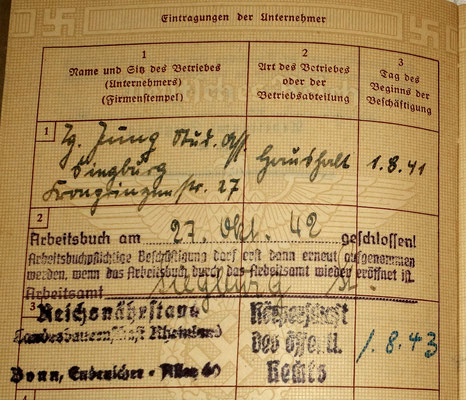 Eintragungen der Unternehmer
1
Name und Sitz des Betriebes
(Unternehmers)
(Firmenstempel)
2
Art des Betriebes
oder der
Betriebsabteilung
3
Tag des
Beginns der
Beschäftigung
1
Jung Stud. Ass.
Siegburg
Kronprinzenstr. 27
Haushalt
1.8.41
2
Arbeitsbuch am 27. Okt. 42 geschlossen!
Arbeitsbuchpflichtige Beschäftigung darf erst dann erneut aufgenommen
werden, wenn das Arbeitsbuch durch das Arbeitsamt wieder eröffnet ist.
Arbeitsamt Siegburg
3
Reichsnährstand
Landesbauernschaft Rheinland
Bonn, Endenicher-Allee 60
Körperschaft
des öffe.ll.
Rechts
1.8.43
4